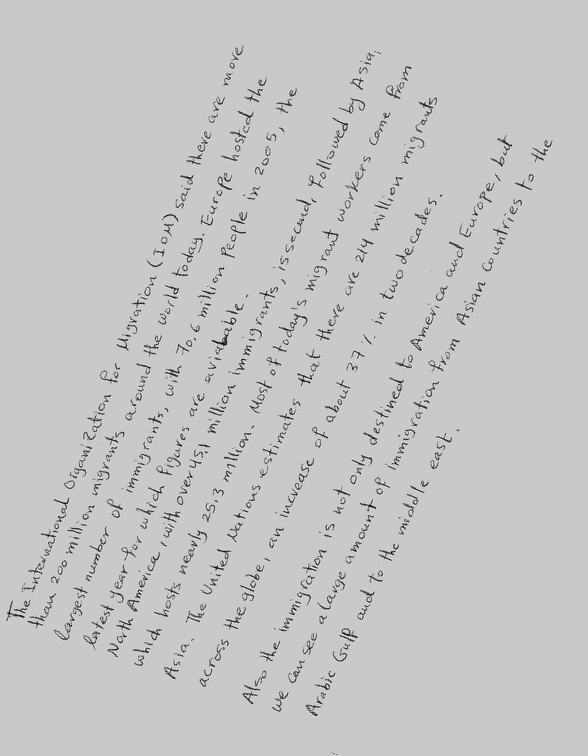 The International Organization for Migration (IOM) said there are more
than 200 million migrants around the world today. Europe hosted the
largest number of immigrants, with 70,6 million people in 2005, the
latest year for which figures are aviabable.
North America, with over 45,1 million immigrants, is second, followed by Asia,
which hosts nearly 25,3 million. Most of today's migrant workers come from
Asia. The United Nations estimates that there are 214 million migrants
across the globe, an increase of about 37% in two decades.
Also the immigration is not only destined to America and Europe, but
we can see a large amount of immigration from Asian countries to the
Arabic Gulf and to the middle east.